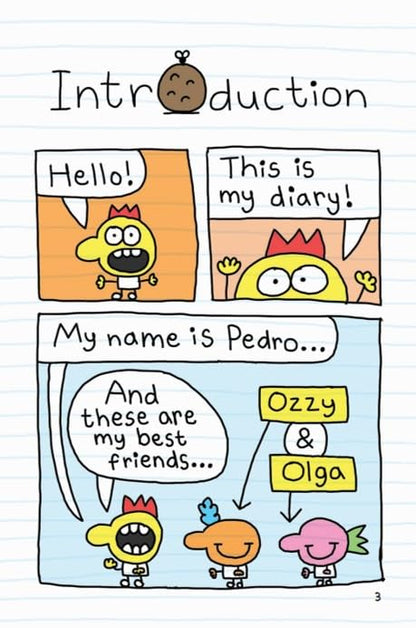 Introduction
Hello!
This is
my diary!
My name is Pedro...
And
these are
my best
friends...
Ozzy
&
Olga
3